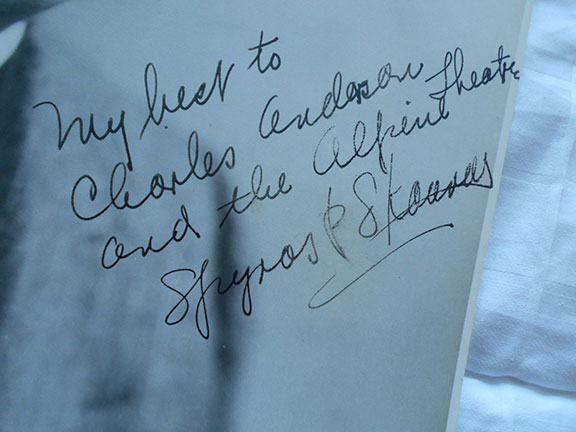 My best to
Charles Anderson
and the Alpine Theatre
Spyros P Skouras